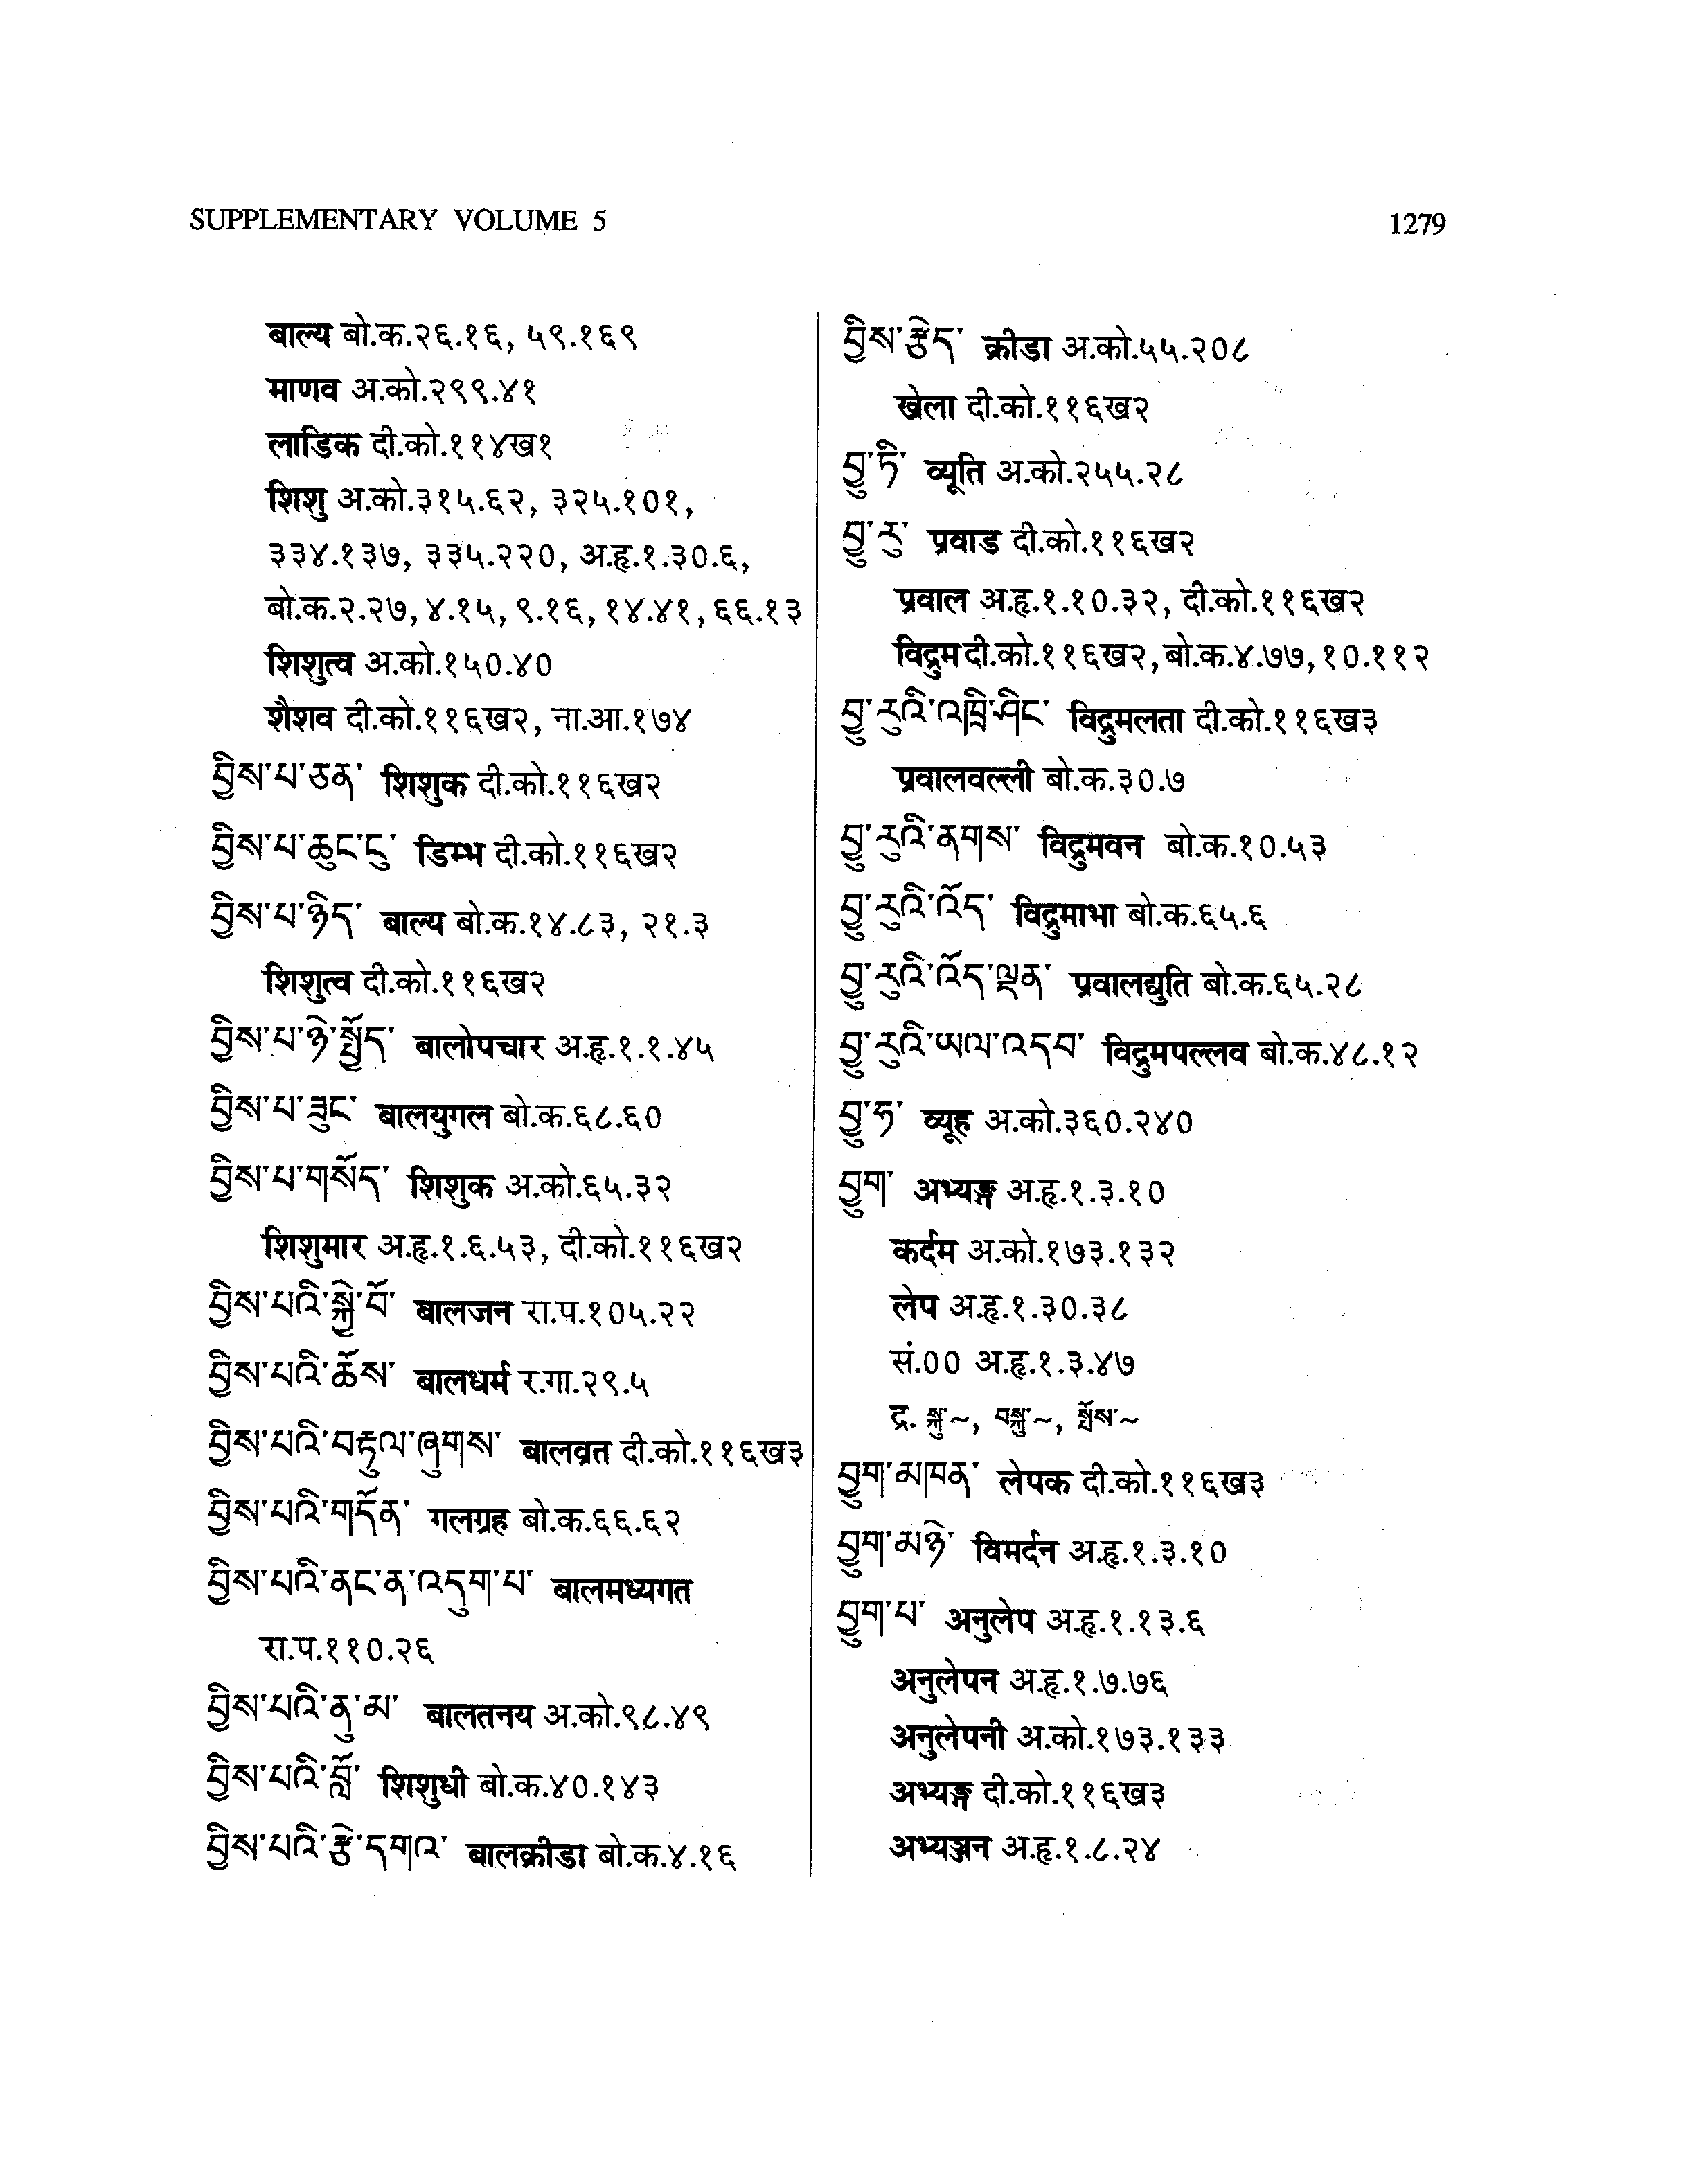 SUPPLEMENTARY VOLUME 5
1279
बाल्य बो.क.२६.१६, ५९.१६९
माणव अ.को.२९९.४१
लाडिक दी.को.११४ख१
शिशु अ.को.३१५.६२, ३२५.१०१,
३३४.१३७, ३३५.२२०, अ.हृ.१.३०.६,
बो.क.२.२७, ४.१५, ९.१६, १४.४१, ६६.१३
शिशुत्व अ.को.१५०.४०
शैशव दी.को.११६ख२, ना.आ.१७४
བྱིས་པ་ཅན་ शिशुक दी.को.११६ख२
བྱིས་པ་ཆུང་ངུ་ डिम्भ दी.को.११६ख२
བྱིས་པ་ཉིད་ बाल्य बो.क.१४.८३, २१.३
शिशुत्व दी.को.११६ख२
བྱིས་པ་ཉེ་སྤྱོད་ बालोपचार अ.हृ.१.१.४५
བྱིས་པ་ཟུང་ बालयुगल बो.क.६८.६०
བྱིས་པ་གསོད་ शिशुक अ.को.६५.३२
शिशुमार अ.हृ.१.६.५३, दी.को.११६ख२
བྱིས་པའི་སྐྱེ་བོ་ बालजन रा.प.१०५.२२
བྱིས་པའི་ཆོས་ बालधर्म र.गा.२९.५
བྱིས་པའི་བརྟུལ་ཞུགས་ बालव्रत दी.को.११६ख३
བྱིས་པའི་གདོན་ गलग्रह बो.क.६६.६२
བྱིས་པའི་ནང་ན་འདུག་པ་ बालमध्यगत
रा.प.११०.२६
བྱིས་པའི་ནུ་མ་ बालतनय अ.को.९८.४९
བྱིས་པའི་བློ་ शिशुधी बो.क.४०.१४३
བྱིས་པའི་རྩེ་དགའ་ बालक्रीडा बो.क.४.१६
བྱིས་རྩེད་ क्रीडा अ.को.५५.२०८
खेला दी.को.११६ख२
བྱུ་ཏི་ व्यूति अ.को.२५५.२८
བྱུ་རུ་ प्रवाड दी.को.११६ख२
प्रवाल अ.हृ.१.१०.३२, दी.को.११६ख२
विद्रुम दी.को.११६ख२, बो.क.४.७७, १०.११२
བྱུ་རུའི་འཁྲི་ཤིང་ विद्रुमलता दी.को.११६ख३
प्रवालवल्ली बो.क.३०.७
བྱུ་རུའི་ནགས་ विद्रुमवन बो.क.१०.५३
བྱུ་རུའི་འོད་ विद्रुमाभा बो.क.६५.६
བྱུ་རུའི་འོད་ལྡན་ प्रवालद्युति बो.क.६५.२८
བྱུ་རུའི་ཡལ་འདབ་ विद्रुमपल्लव बो.क.४८.१२
བྱུ་ཧ་ व्यूह अ.को.३६०.२४०
བྱུག་ अभ्यङ्ग अ.हृ.१.३.१०
कर्दम अ.को.१७३.१३२
लेप अ.हृ.१.३०.३८
सं.०० अ.हृ.१.३.४७
द्र. སྐུ་~, བསྐུ་~, སྤོས་~
བྱུག་མཁན་ लेपक दी.को.११६ख३
བྱུག་མཉེ་ विमर्दन अ.हृ.१.३.१०
བྱུག་པ་ अनुलेप अ.हृ.१.१३.६
अनुलेपन अ.हृ.१.७.७६
अनुलेपनी अ.को.१७३.१३३
अभ्यङ्ग दी.को.११६ख३
अभ्यञ्जन अ.हृ.१.८.२४